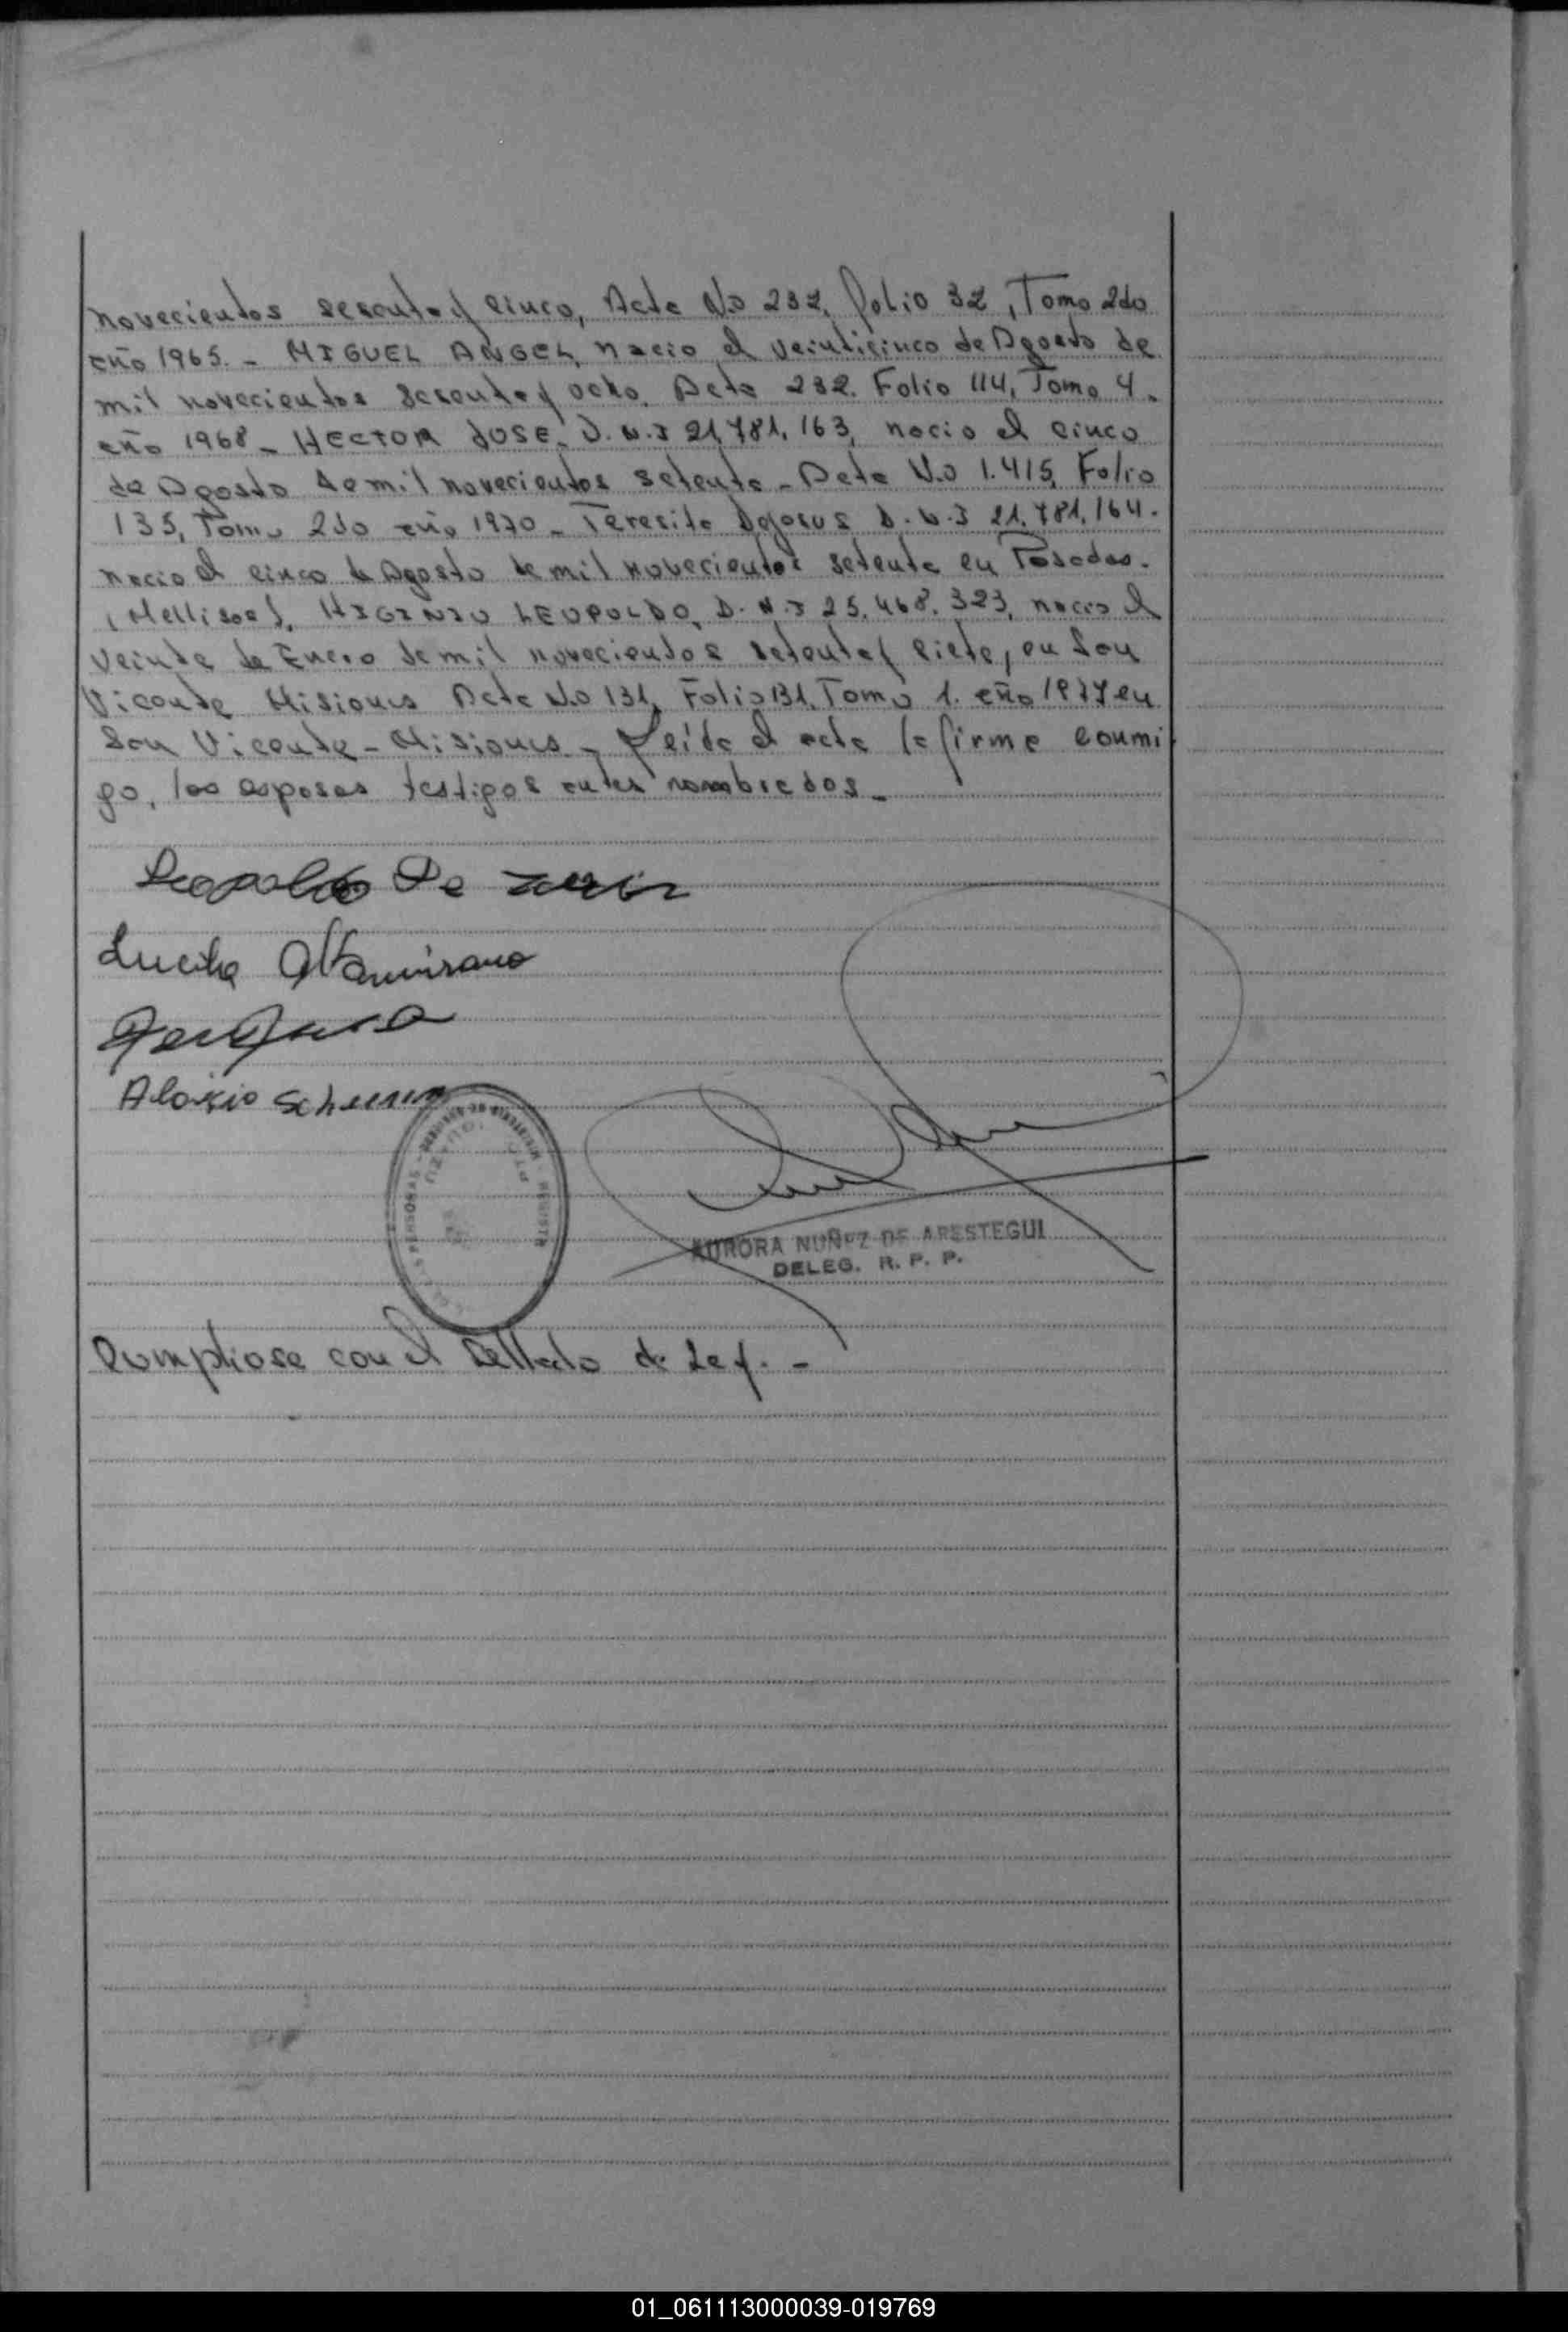 novecientos sesenta y cinco, Acta No 232, folio 32, Tomo 2do
año 1965. - MIGUEL ANGEL, nacio el veinticinco de Agosto de
mil novecientos sesenta y ocho. Acta 232. Folio 114, Tomo 4.
año 1968 - HECTOR JOSE. D.N.I 21,781,163, nacio el cinco
de Agosto de mil novecientos setenta - Acta N.o 1.415, Folio
135, Tomo 2do año 1970 - Teresita D.N.I 21.781.164.
nacio el cinco de Agosto de mil novecientos setenta en Posadas.
(Mellisos). HIGINIO LEOPOLDO, D.N.I 25.468.323, nacio el
veinte de Enero de mil novecientos setenta y siete, en San
Vicente Misiones Acta N.o 131, Folio 131, Tomo 1. año 1977 en
San Vicente - Misiones - Leida el acta la firma conmi
go, los esposos testigos antes nombrados -
Leopoldo De
Lucila Altamirano
Aloisio
AURORA NUÑEZ DE ARESTEGUI
DELEG. R. P. P.
Cumpliose con el Sellado de Ley. -
01_061113000039-019769